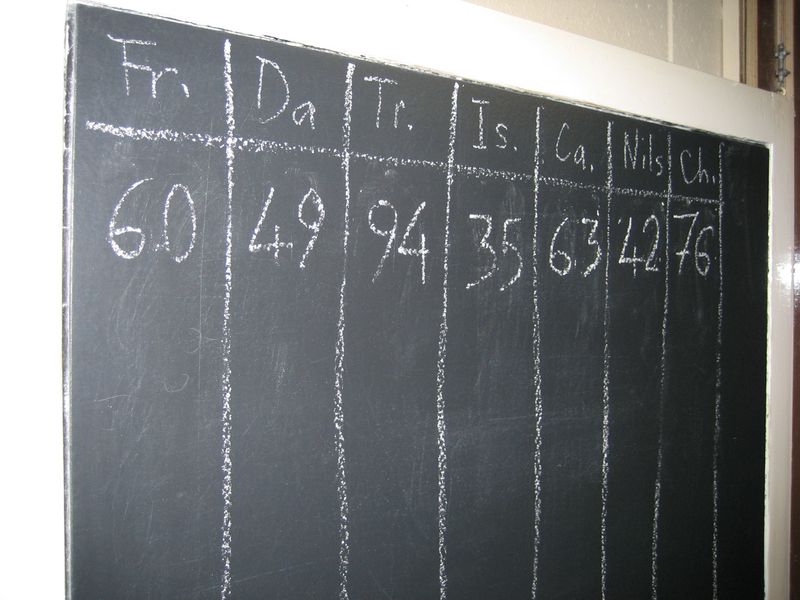 Fr. Da Tr. Is. Ca. Nils Ch.
60 49 94 35 63 42 76